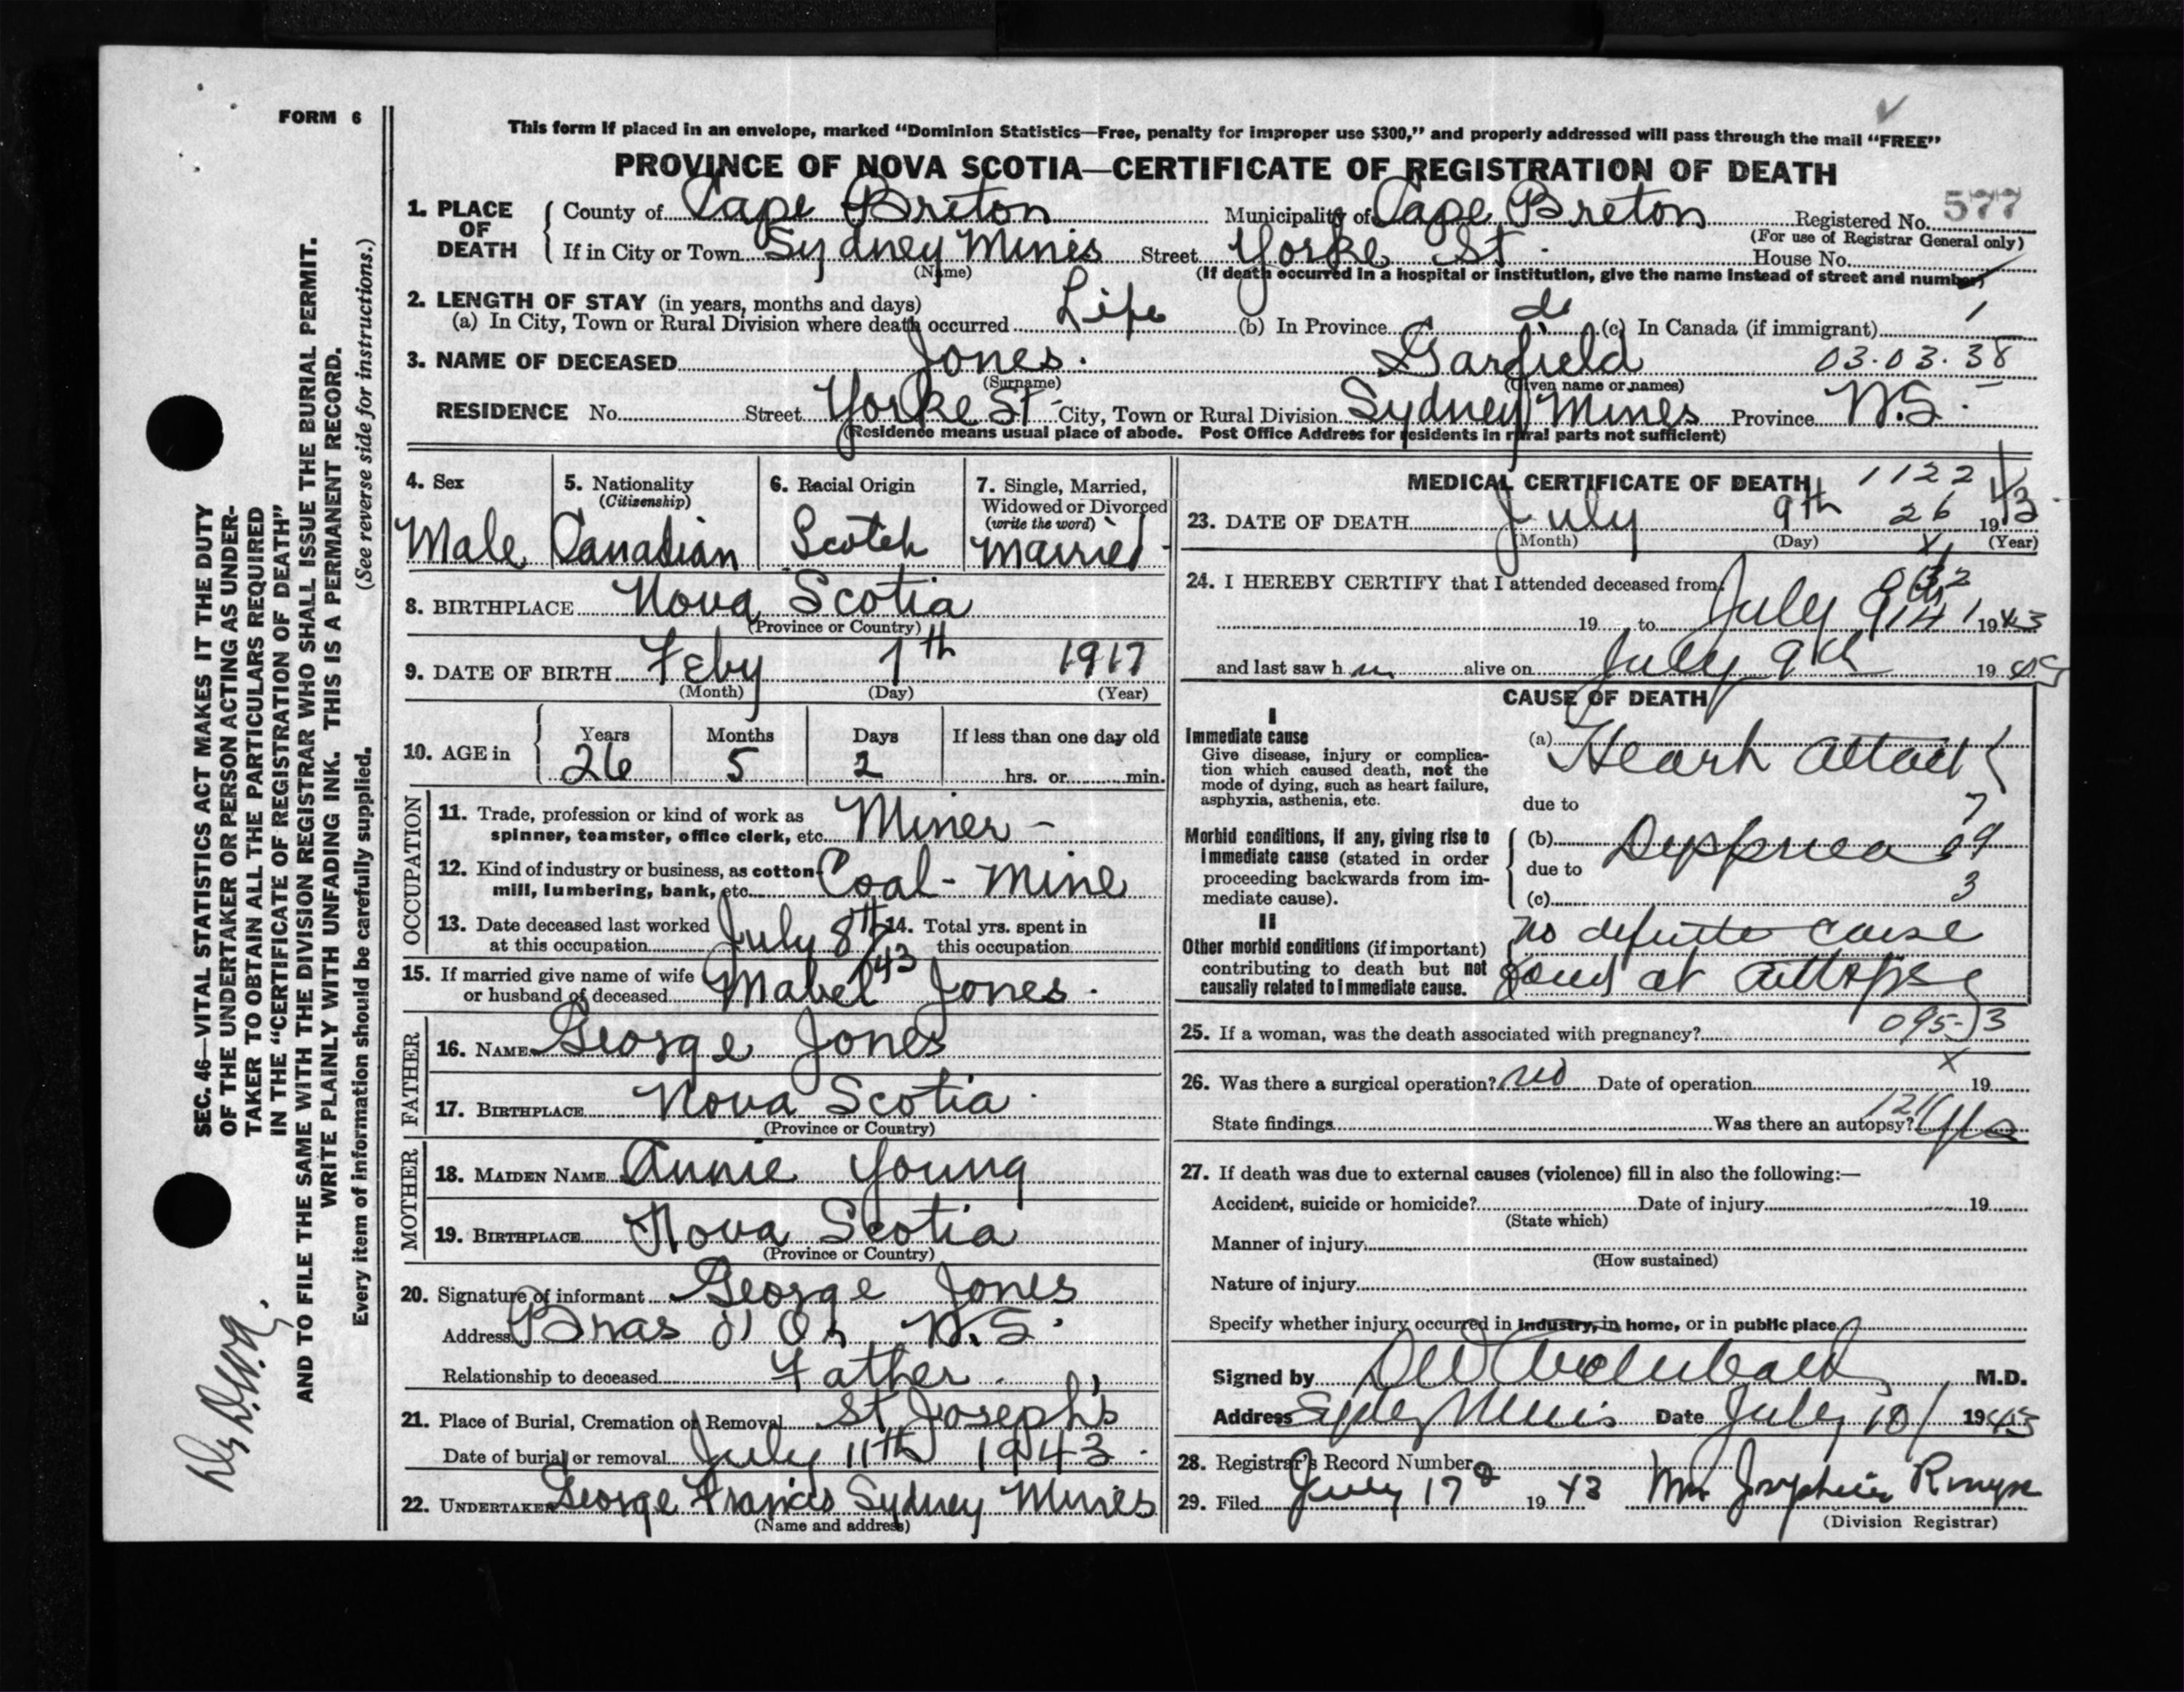 FORM 6
This form if placed in an envelope, marked "Dominion Statistics—Free, penalty for improper use $300," and properly addressed will pass through the mail "FREE"
PROVINCE OF NOVA SCOTIA—CERTIFICATE OF REGISTRATION OF DEATH
1. PLACE OF DEATH County of Cape Breton Municipality of Cape Breton Registered No. 577
(For use of Registrar General only)
If in City or Town Sydney Mines Street Yorke St. House No.
(Name) (If death occurred in a hospital or institution, give the name instead of street and number)
2. LENGTH OF STAY (in years, months and days)
(a) In City, Town or Rural Division where death occurred Life (b) In Province do (c) In Canada (if immigrant)
3. NAME OF DECEASED Jones. Garfield 03.03.38
(Surname) (Given name or names)
RESIDENCE No. Street Yorke St City, Town or Rural Division Sydney Mines Province N.S.
(Residence means usual place of abode. Post Office Address for residents in rural parts not sufficient)
4. Sex 5. Nationality (Citizenship) 6. Racial Origin 7. Single, Married, Widowed or Divorced (write the word)
Male Canadian Scotch Married
8. BIRTHPLACE Nova Scotia
(Province or Country)
9. DATE OF BIRTH Feby 7th 1917
(Month) (Day) (Year)
10. AGE in Years Months Days If less than one day old
26 5 2 hrs. or min.
OCCUPATION
11. Trade, profession or kind of work as
spinner, teamster, office clerk, etc. Miner -
12. Kind of industry or business, as cotton-
mill, lumbering, bank, etc. Coal-Mine
13. Date deceased last worked
at this occupation July 8th /43
14. Total yrs. spent in
this occupation
15. If married give name of wife
or husband of deceased Mabel Jones.
FATHER
16. NAME George Jones
17. BIRTHPLACE Nova Scotia
(Province or Country)
MOTHER
18. MAIDEN NAME Annie Young
19. BIRTHPLACE Nova Scotia
(Province or Country)
20. Signature of informant George Jones
Address Bras d'Or N.S.
Relationship to deceased Father.
21. Place of Burial, Cremation or Removal St Joseph's
Date of burial or removal July 11th 1943
22. UNDERTAKER George Francis Sydney Mines
(Name and address)
MEDICAL CERTIFICATE OF DEATH 1122
23. DATE OF DEATH July 9th 26 1943
(Month) (Day) (Year)
24. I HEREBY CERTIFY that I attended deceased from
19 to July 9th 1943
and last saw h alive on July 9th 19
CAUSE OF DEATH
I
Immediate cause
Give disease, injury or complica-
tion which caused death, not the
mode of dying, such as heart failure,
asphyxia, asthenia, etc.
(a) Heart attack
due to
Morbid conditions, if any, giving rise to
immediate cause (stated in order
proceeding backwards from im-
mediate cause).
(b) Dyspnea
due to
(c)
II
Other morbid conditions (if important)
contributing to death but not
causally related to immediate cause.
No definite cause
found at autopsy
25. If a woman, was the death associated with pregnancy? 095-3
26. Was there a surgical operation? no Date of operation 19
State findings Was there an autopsy? Yes
27. If death was due to external causes (violence) fill in also the following:—
Accident, suicide or homicide? Date of injury 19
(State which)
Manner of injury
(How sustained)
Nature of injury
Specify whether injury occurred in industry, in home, or in public place
Signed by Archibald M.D.
Address Sydney Mines Date July 10/ 1943
28. Registrar's Record Number
29. Filed July 17 1943 Mrs Josephine
(Division Registrar)
SEC. 46—VITAL STATISTICS ACT MAKES IT THE DUTY
OF THE UNDERTAKER OR PERSON ACTING AS UNDER-
TAKER TO OBTAIN ALL THE PARTICULARS REQUIRED
IN THE "CERTIFICATE OF REGISTRATION OF DEATH"
AND TO FILE THE SAME WITH THE DIVISION REGISTRAR WHO SHALL ISSUE THE BURIAL PERMIT.
WRITE PLAINLY WITH UNFADING INK. THIS IS A PERMANENT RECORD.
Every item of information should be carefully supplied. (See reverse side for instructions.)